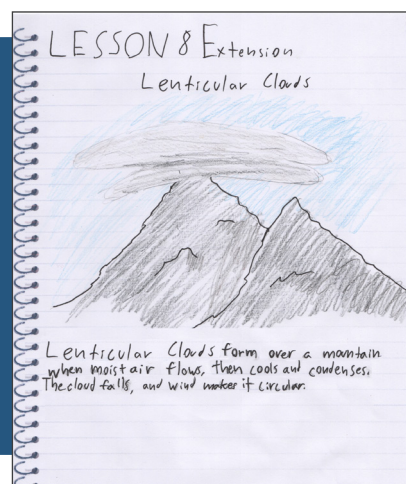 LESSON 8 Extension
Lenticular Clouds
Lenticular Clouds form over a mantain
when moist air flows, then cools and condenses.
The cloud falls, and wind makes it circular.